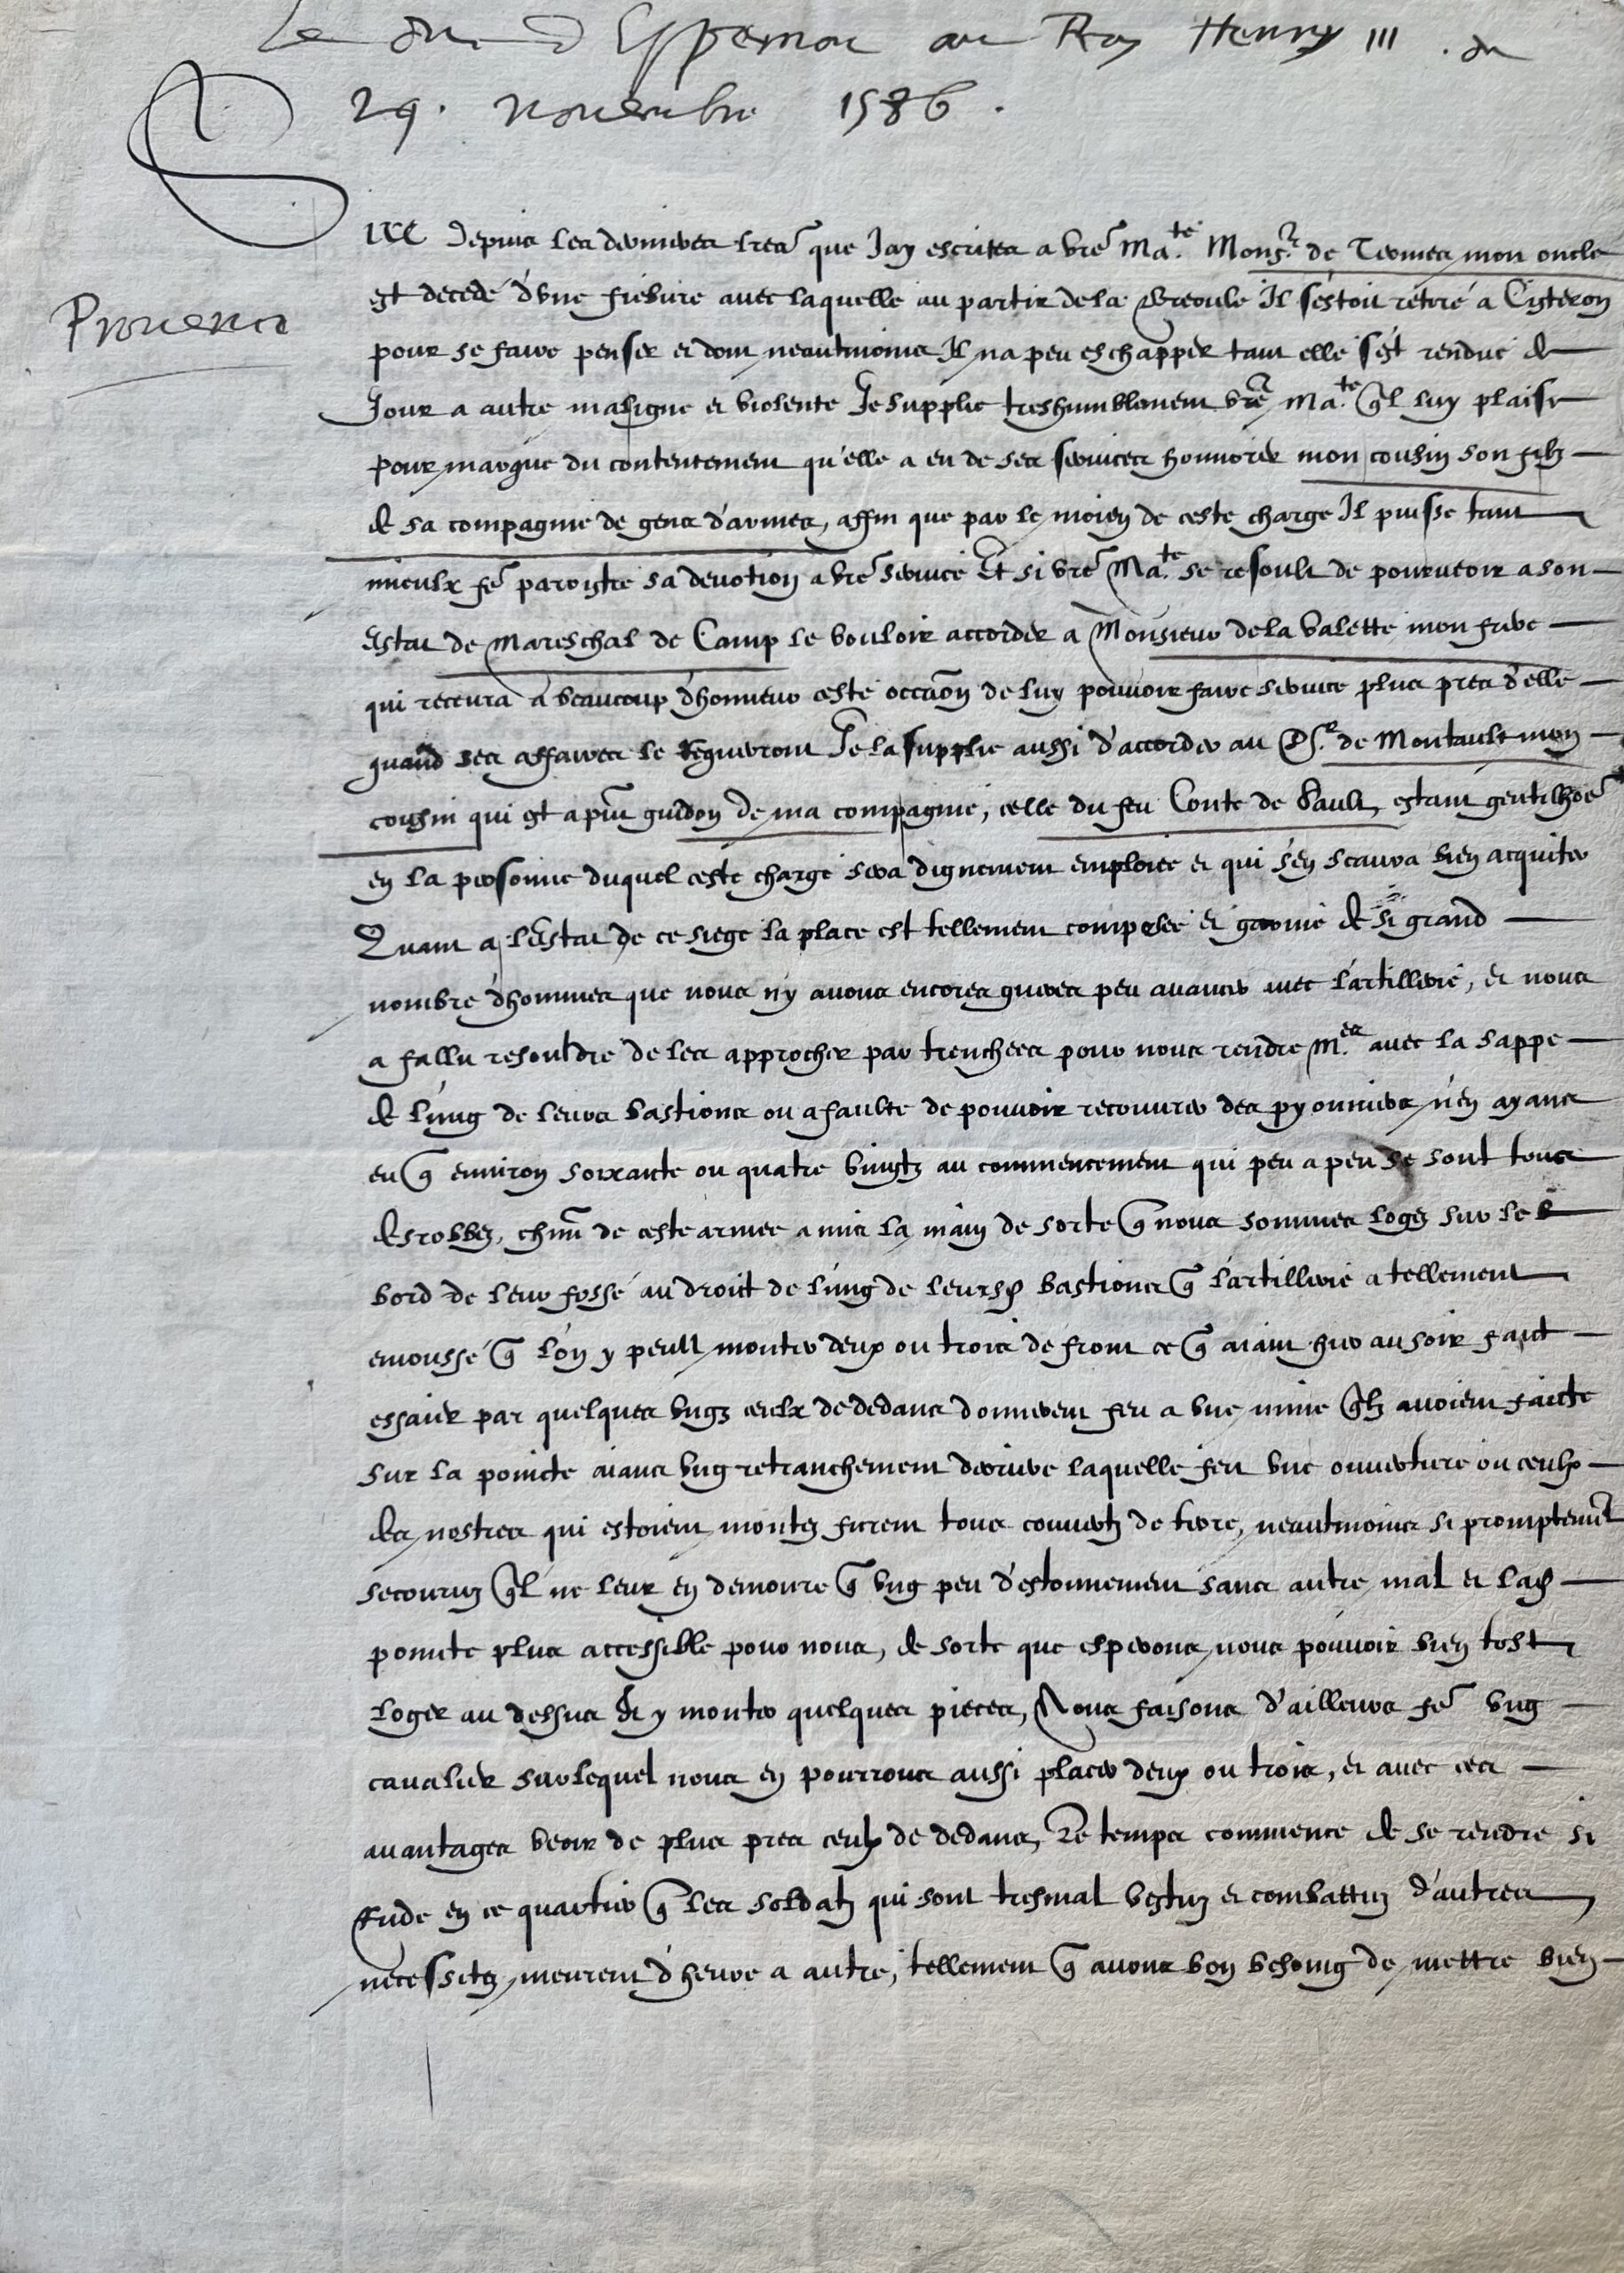 Le duc d'Espernon au Roy Henry III. du
29. Novembre 1586.
Provence
Sire Depuis les dernieres lr̃es que J'ay escrites a vr̃e Ma.té Mons.r de Termes mon oncle
est decedé d'une fiebvre avec laquelle au partir de la Breoule Il s'estoit retiré a Cisteron
pour se faire penser et dont neantmoins Il n'a peu eschapper tant elle s'est rendue de
Jour a autre maligne et violente Je supplie treshumblement vr̃e Ma.té q̃l luy plaise
pour marque du contentement qu'elle a eu de ses services honnorer mon cousin son filz
de sa compagnie de gens d'armes, affin que par le moien de ceste charge Il puisse tant
mieulx fr̃e paroistre sa devotion a vr̃e service Et si vr̃e Ma.té se resoult de pourveoir a son
estat de Mareschal de Camp le vouloir accorder a Monsieur de la Valette mon frere
qui recevra a beaucoup d'honneur ceste occãon de luy pouvoir faire service plus pres d'elle
quand ses affaires le requerront Je la supplie aussi d'accorder au S.r de Montault mon
cousin qui est a pñt guidon de ma compagnie, celle du feu Conte de Sault, estant gentilhõe
en la personne duquel ceste charge sera dignement emploiee et qui s'en scaura bien acquiter
Quant a l'estat de ce siege la place est tellement composee et garnie de si grand
nombre d'hommes que nous n'y avons encores gueres peu avancer avec l'artillerie, et nous
a fallu resouldre de les approcher par trenchees pour nous rendre m.es avec la sappe
de l'ung de leurs bastions ou a faulte de pouvoir recouvrer des pyonniers n'en ayans
eu q̃ environ soixante ou quatre vingtz au commencement qui peu a peu se sont tous
desrobbez, chũn de ceste armee a mis la main de sorte q̃ nous sommes logez sur le b
bord de leur fossé au droict de l'ung de leursd bastions q̃ l'artillerie a tellement
emoussé q̃ l'on y peult monter deux ou trois de front ce q̃ aiant hier au soir faict
essaier par quelques ungs ceulx de dedans donnerent feu a une mine q̃lz avoient faicte
sur la poincte aians ung retranchement derriere laquelle feit une ouverture ou ceulx
des nostres qui estoient montez furent tous couvertz de terre, neantmoins si promptem̃t
secouruz q̃l ne leur en demoure q̃ ung peu d'estonnement sans autre mal et lad
poincte plus accessible pour nous, de sorte que esperons nous pouvoir bien tost
loger au dessus et y monter quelques pieces, Nous faisons d'ailleurs fr̃e ung
cavalier sur lequel nous en pourrons aussi placer deux ou trois, et avec ces
avantages veoir de plus pres ceulx de dedans, Le temps commence de se rendre si
rude en ce quartier q̃ les soldatz qui sont tresmal vestuz et combattuz d'autres
necessitez meurent d'heure a autre, tellement q̃ avons bon besoing de mettre bien